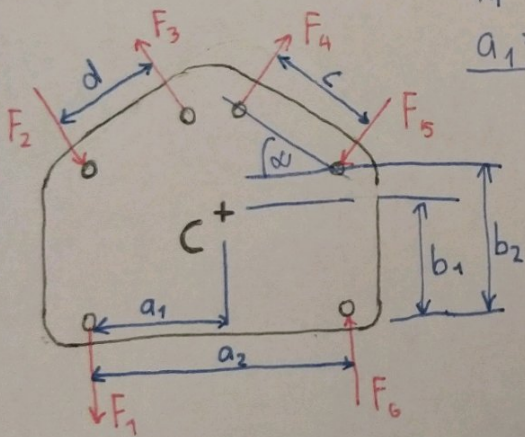 F3
F4
a1
d
c
F2
F5
α
C
b1
b2
a1
a2
F1
F6